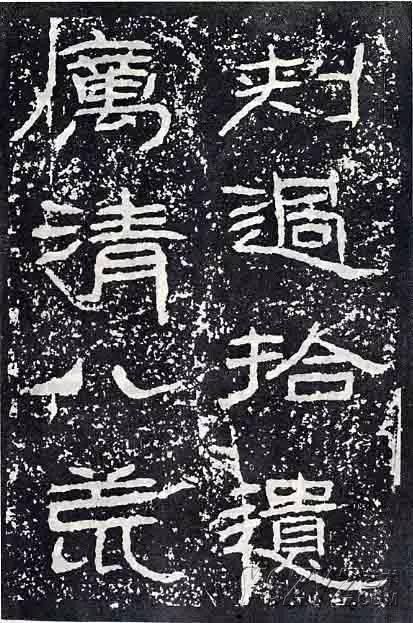 刺過拾遺
厲清八荒